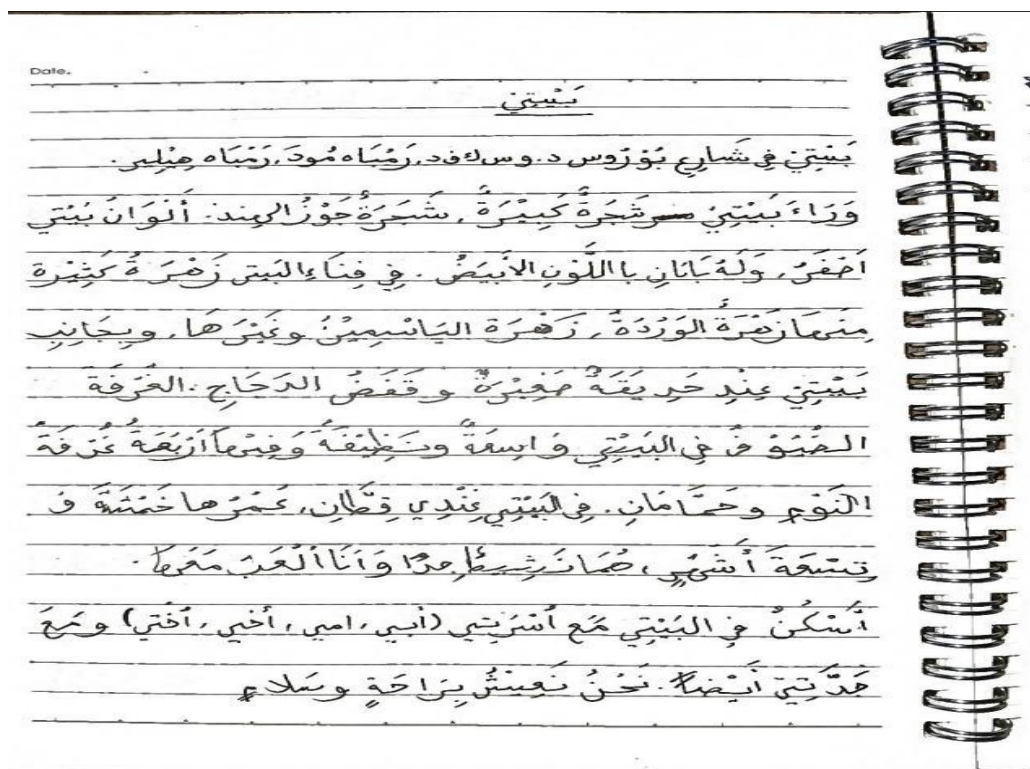 Date.
بَيْتِيْ
بَيْتِيْ فِي شَارِعِ بُوْرُوس د. وس ك ف د، رَمْبَاه مُودَ، رَمْبَاه هِيْلِير.
وَرَاءَ بَيْتِيْ شَجَرَةٌ كَبِيْرَةٌ، شَجَرَةُ جَوْزُ الهِند. أَلْوَانُ بَيْتِي
اَخْفَرُ، وَلَهُ بَابَانِ بِااللَّوْنِ الاَبْيَضُ. فِي فِنَاءِ البَيتِ زَهْرَةُ كَثِيْرَة
مِنهَا زَهْرَةُ الوَرْدَةُ، زَهْرَة اليَاسْمِيْنُ وغَيْرَهَا. وبِجَانِبِ
بَيْتِيْ عِنْدِ حَدِيقَةٌ صَغِيْرَةٌ وقَفَصُ الدَجَاجِ. الغُرْفَة
الضُيُوْفُ فِي البَيْتِي وَاسِعَةٌ ونَظِيْفَةٌ وَفِيْهَا اَرْبَعَةُ غُرْفَةُ
النَوْمِ وحَمَّامَانِ. فِي البَيْتِي عِنْدِي قِطَّانِ، عُمْرُها خَمْسَة وَ
تِسْعَةَ أَشْهُرٍ، هُمَا نَشِيطٌ جِدًّا وَأَنَا أَلْعَبُ مَعَهَا.
أَسْكُنُ فِي البَيْتِي مَع أُسْرَتِي (أَبي، امي، أخي، أختي) ومَعَ
جَدَّتِيْ أَيْضًا. نَحْنُ نَعِيْشُ بِرَاحَةٍ وسَلامٍ